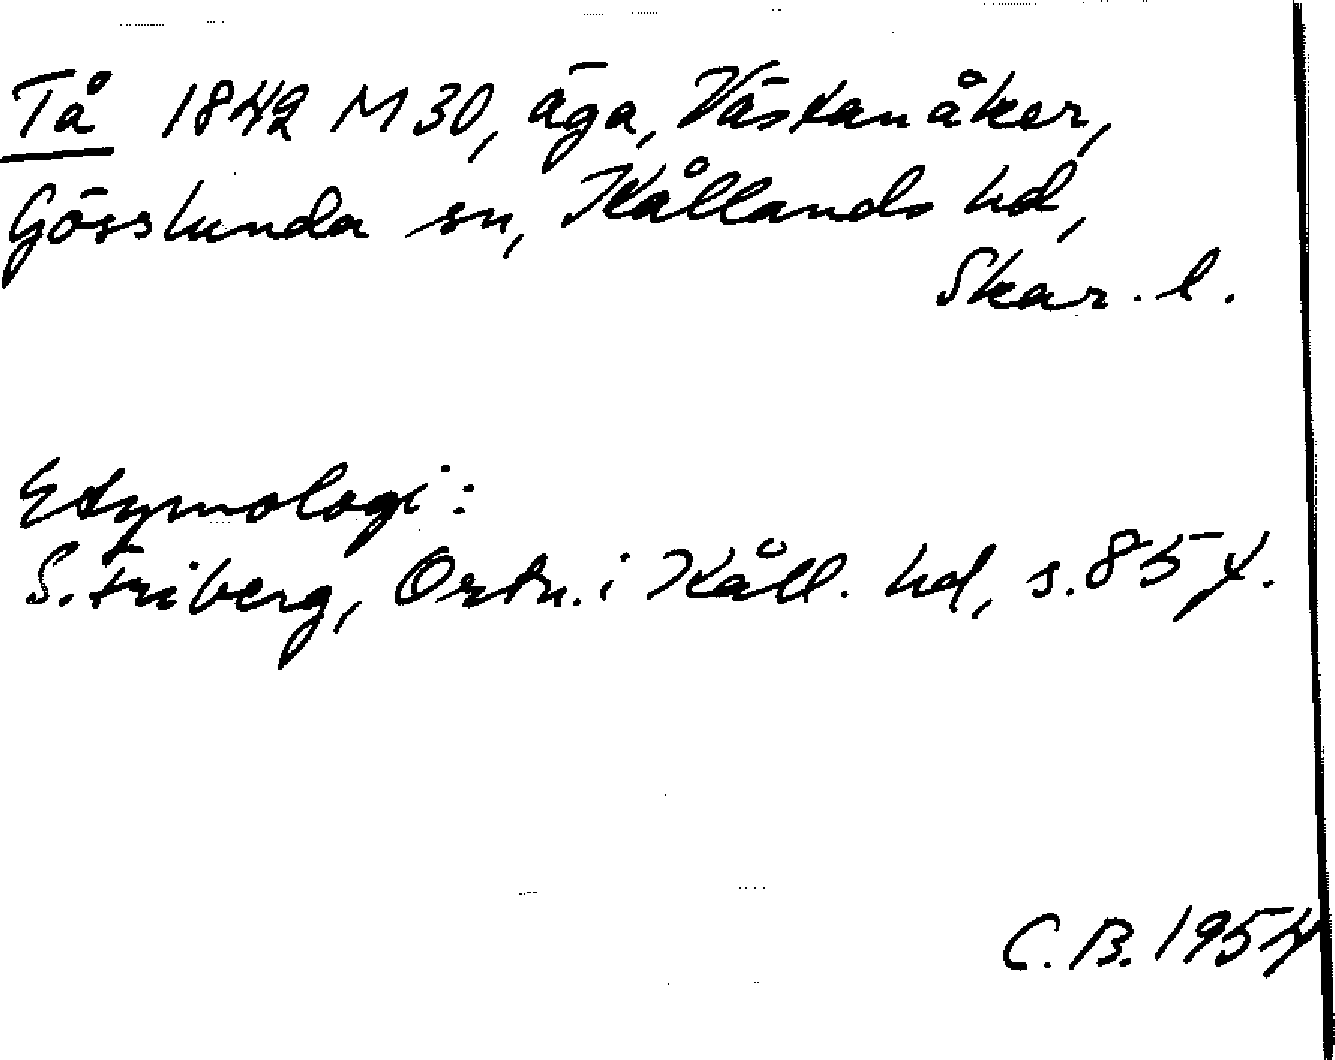 Tå 1842 M 30, äga, Västanåker,
Gösslunda sn, Kållands hd,
Skar. l.
Etymologi:
S. Friberg, Ortn. i Kåll. hd, s. 85 f.
C. B. 1954